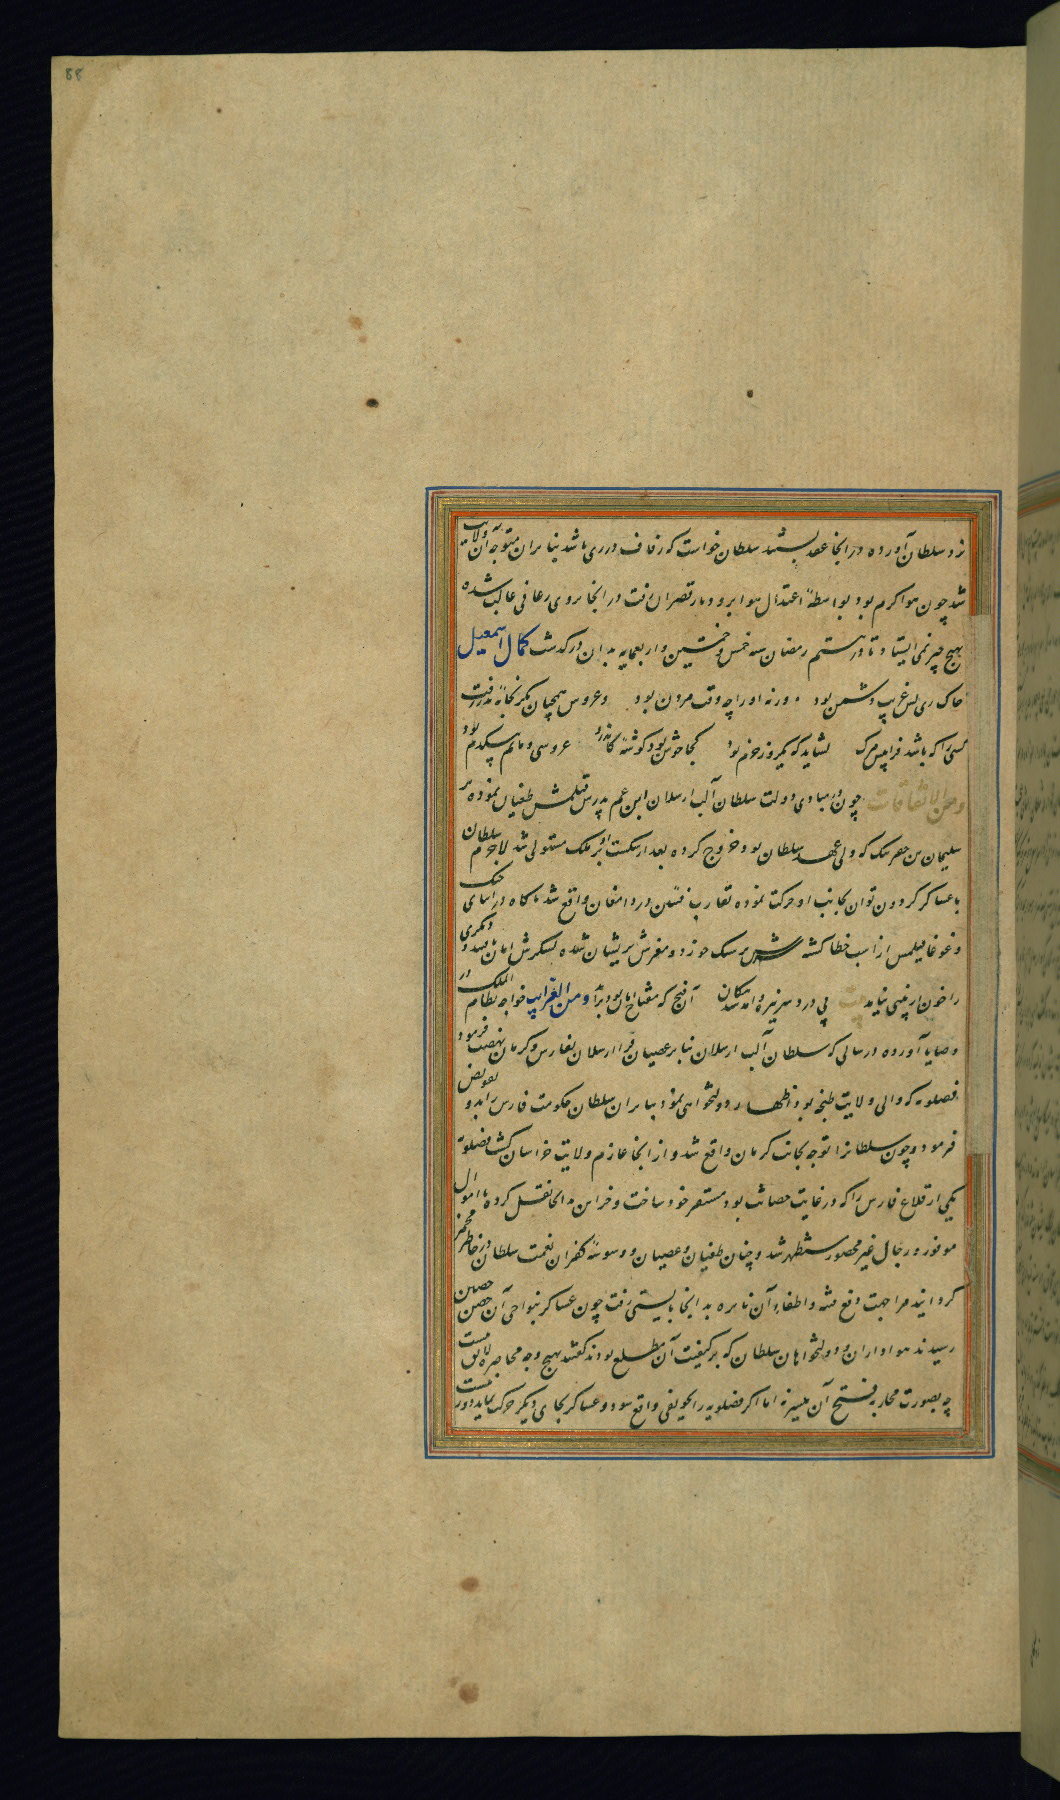 88
نزد سلطان آورده در انجا عقد بستند سلطان خواست که زفاف در ری باشد بنابران متوجه آن ولایت
شد چون هوا گرم بود بواسطهٔ اعتدال هوا برودبار قصران رفت در انجا بروی رعافی غالب شده
بهیچ چیز نمی ایستاد تا در هشتم رمضان سنه خمس و خمسین و اربعمایه بدان درگذشت کمال اسمعیل
خاک ری بس غریب دشمن بود ورنه او را چه وقت مردن بود و عروس همچنان بکر نجانهٔ پدر رفت
کسی را که باشد فراپیش مرگ نشاید که یکروز خرم بود کجا خوش بود گوشهٔ کاندرو عروسی و ماتم بیکدم بود
ومن الاتفاقات چون در مبادی دولت سلطان آلب ارسلان ابن عم پدرش قتلمش طغیان نموده بر
سلیمان بن جغربیک که ولی عهد سلطان بود خروج کرده بعد از شکست او بر ملک مستولی شد لاجرم سلطان
با عساکر گردون توان بجانب او حرکت نموده تقارب فئتین در دامغان واقع شد ناگاه در اثنای جنگ
و غوغا قتلمش از اسب خطا گشته سرش بر سنگ خورد و مغزش پریشان شده لشکرش امان دیدند دیگری
را خون از بینی نیامد بیت پی درد سر نیزه و آمد شد پیکان آن فتح که مفتاح امان بود برآمد ومن الغرایب خواجه نظام الملک در
وصایا آورده در سالی که سلطان آلب ارسلان بنابر عصیان قرا ارسلان بفارس و کرمان نهضت فرمود
فضلویه که والی ولایت طبخه بود اظهار دولتخواهی نمود بنابران سلطان حکومت فارس را بدو تفویض
فرمود و چون سلطانرا توجه بجانب کرمان واقع شد و از انجا عازم ولایت خراسان گشت فضلویه
یکی از قلاع فارس را که در غایت حصانت بود مستقر خود ساخت و خزاین بدانجا نقل کرده با اموال
موفور و رجال غیر محصور مستظهر شد و چنان طغیان و عصیان و وسوسهٔ کفران نعمت سلطان در خاطر مخمر
گردانید مرا جهت دفع فتنه و اطفاء آن نایره بدانجا بایستی رفت چون عساکر بنواحی آن حصن حصین
رسیدند هواداران و دولتخواهان سلطان که بر کیفیت آن مطلع بودند گفتند بهیچ وجه محاصره لایق نیست
چه بصورت محاربه فتح آن میسر نه اما اگر فضلویه را تخویفی واقع شود و عساکر بجای دیگر حرکت نماید دور نیست